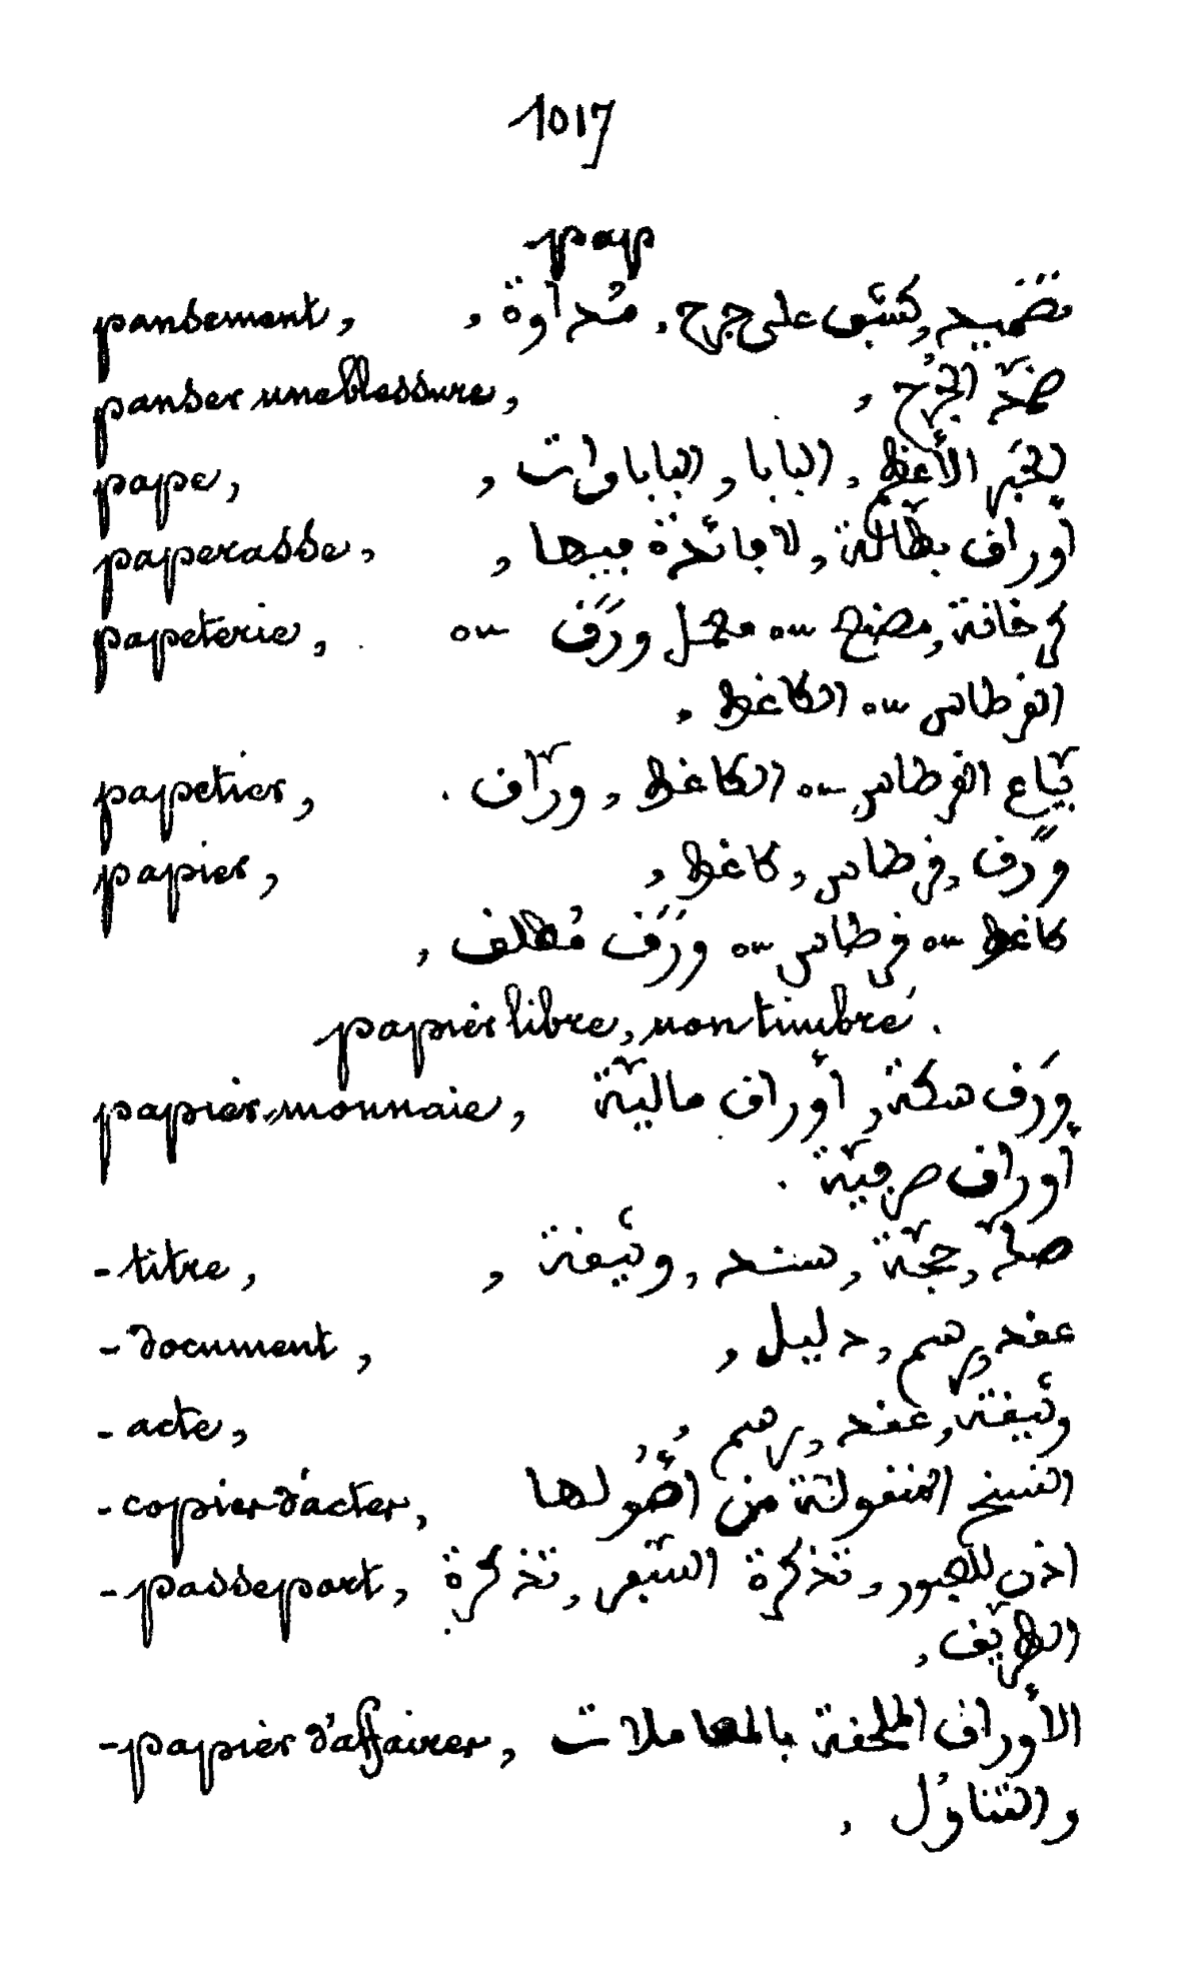 1017
pap
pansement, تضميد, كشف على جرح, مُداوة,
panser une blessure, ضمّد الجُرح,
pape, الحَبر الأعظم, البابا, الباباوات,
paperasse, أوراق بطّالة, لا فائدة فيها,
papeterie, كرخانة, مصنع ou محمل ورَق ou
القرطاس ou الكاغط,
papetier, بيّاع القرطاس ou الكاغط, ورّاق.
papier, ورق, قرطاس, كاغط,
كاغط ou قرطاس ou ورَق مُطلق,
papier libre, non timbré.
papier-monnaie, ورَق سكة, أوراق ماليّة
أوراق صرفيّة.
- titre, صكّ, حجّة, سند, وثيقة,
- document, عقد, رسم, دليل,
- acte, وثيقة, عقد, رسم,
- copier d'acter, النسخ المنقولة من أُصُولها
- passeport, اذن للعبور, تذكرة السّفر, تذكرة
الطريق,
- papier d'affairer, الأوراق الملحقة بالمعاملات
والتناوُل,